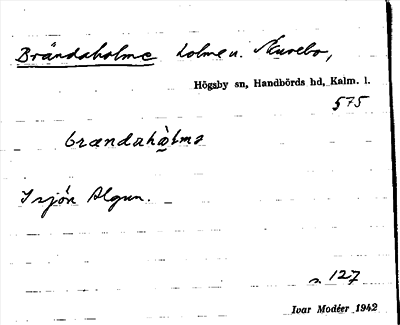 Brändaholme holme u. Skurebo,
Högsby sn, Handbörds hd, Kalm. l.
575
brændahòlmə
I sjön Algun.
s. 127
Ivar Modéer 1942